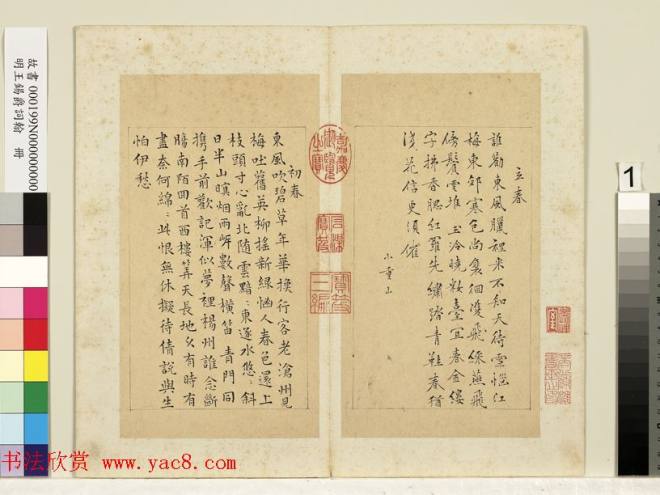 立春
誰勸東風臘裡來不知天待雪惱江
梅東郊寒色尚裵徊雙飛綵燕飛
傍鬢雲堆 玉冷曉妝臺宜春金縷
字拂香腮紅羅先繡踏青鞋春猶
淺花信更須催
小重山
初春
東風吹碧草年華換行客老滄州見
梅吐舊英柳搖新綠惱人春色還上
枝頭寸心亂北隨雲黯:東逐水悠:斜
日半山暝烟兩岸數聲橫笛 青門同
攜手前歡記渾似夢裡楊州誰念斷
腸南陌回首西樓算天長地久有時有
盡奈何綿:此恨無休擬待倩說與生
怕伊愁
嘉慶御覽之寶
石渠寶笈
寶笈三編
故書 000199N000000000
明王錫爵詞翰 冊
1
书法欣赏 www.yac8.com